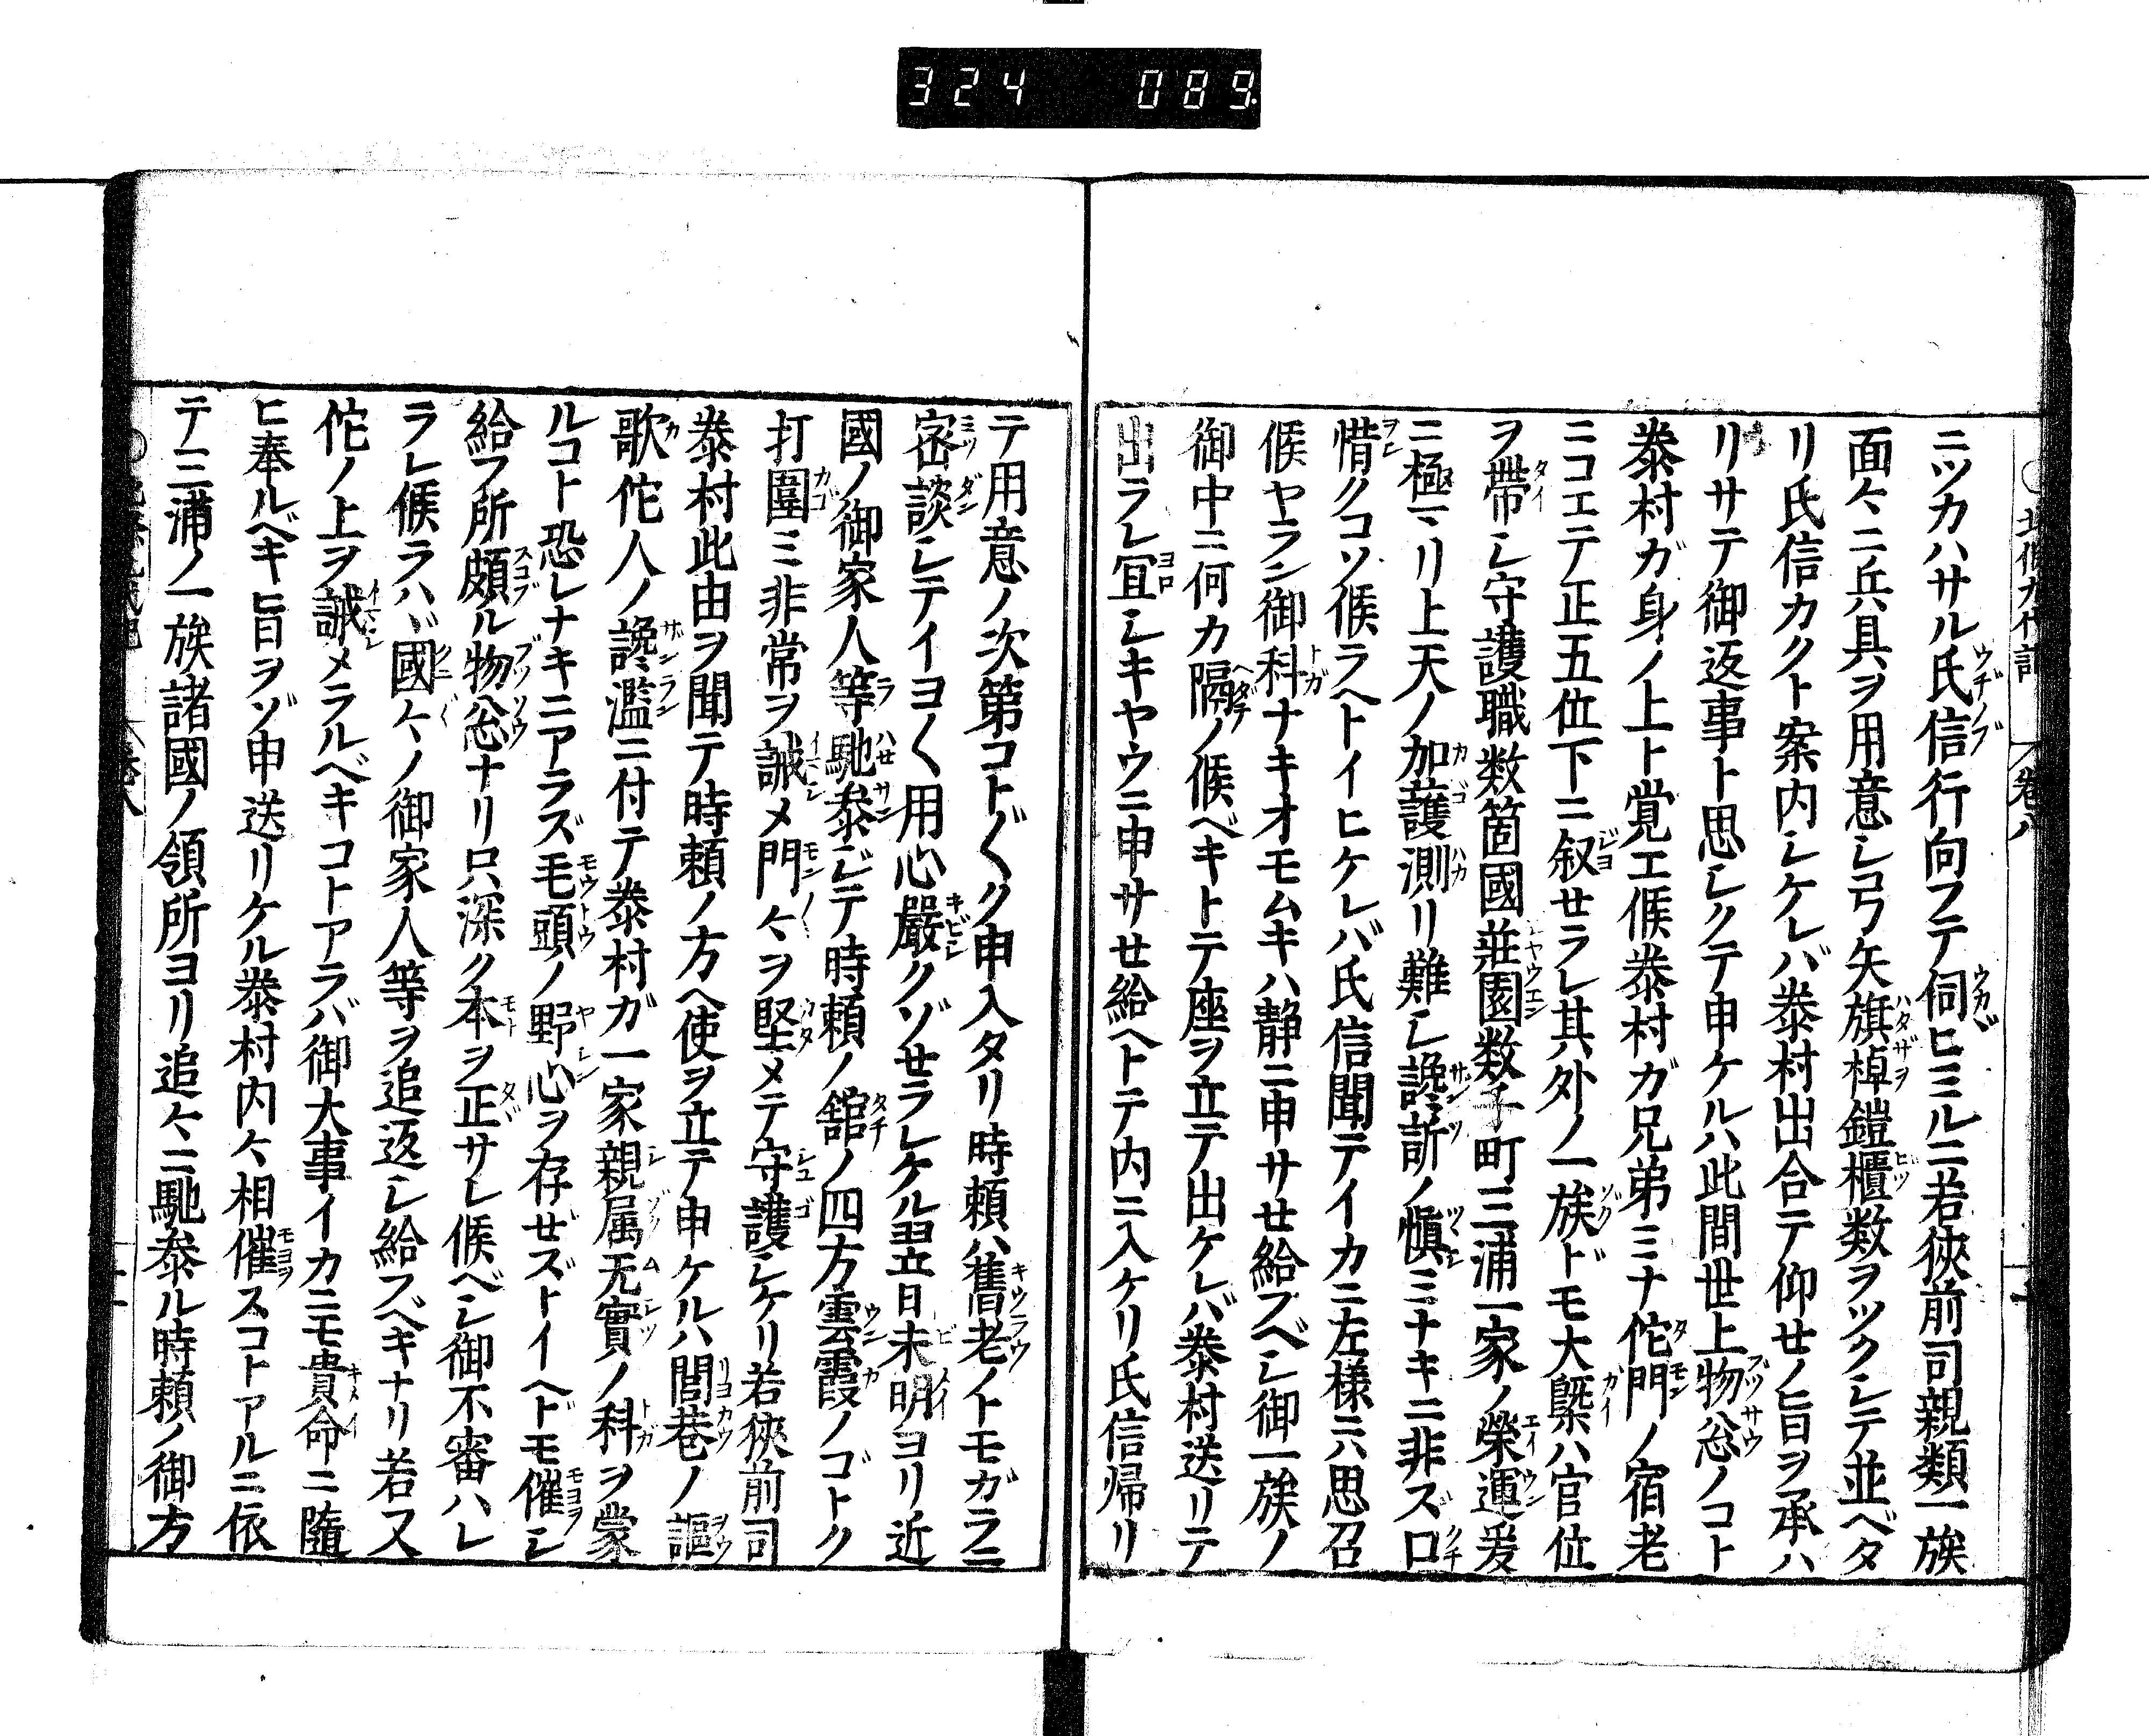 324 089
ニツカハサル氏信行向フテ伺ヒミルニ若狹前司親類一族
面々ニ兵具ヲ用意シ弓矢旗棹鎧櫃数ヲツクシテ並ベタ
リ氏信カクト案内シケレバ泰村出合テ仰セノ旨ヲ承ハ
リサテ御返事ト思シクテ申ケルハ此間世上物忩ノコト
泰村ガ身ノ上ト覚エ候泰村ガ兄弟ミナ佗門ノ宿老
ニコエテ正五位下ニ叙セラレ其外ノ一族ドモ大槩ハ官位
ヲ帶シ守護職数箇國莊園数千町三浦一家ノ榮運爰
ニ極マリ上天ノ加護測リ難シ讒訴ノ愼ミナキニ非ズ口
惜クコソ候ラヘトイヒケレバ氏信聞テイカニ左様ニハ思召
候ヤラン御科ナキオモムキハ静ニ申サセ給フベシ御一族ノ
御中ニ何カ隔ノ候ベキトテ座ヲ立テ出ケレバ泰村送リテ
出ラレ宜シキヤウニ申サセ給ヘトテ内ニ入ケリ氏信帰リ
テ用意ノ次第コト〲ク申入タリ時頼ハ舊老ノトモガラニ
密談シテイヨ〱用心嚴クゾセラレケル翌日未明ヨリ近
國ノ御家人等馳参ジテ時頼ノ舘ノ四方雲霞ノゴトク
打圍ミ非常ヲ誡メ門々ヲ堅メテ守護シケリ若狹前司
泰村此由ヲ聞テ時頼ノ方ヘ使ヲ立テ申ケルハ閭巷ノ謳
歌佗人ノ讒濫ニ付テ泰村ガ一家親属无實ノ科ヲ蒙
ルコト恐レナキニアラズ毛頭ノ野心ヲ存ゼズトイヘドモ催シ
給フ所頗ル物忩ナリ只深ク本ヲ正サレ候ベシ御不審ハレ
ラレ候ラハヾ國々ノ御家人等ヲ追返シ給フベキナリ若又
佗ノ上ヲ誡メラルベキコトアラバ御大事イカニモ貴命ニ隨
ヒ奉ルベキ旨ヲゾ申送リケル泰村内々相催スコトアルニ依
テ三浦ノ一族諸國ノ領所ヨリ追々ニ馳参ル時頼ノ御方